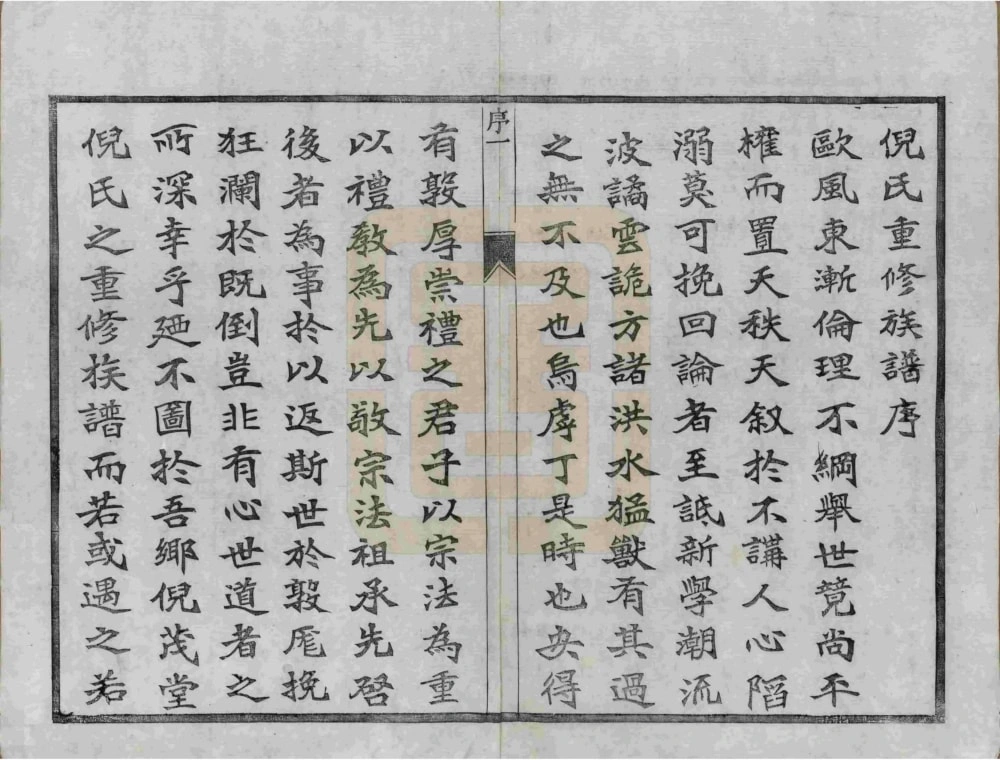 倪氏重修族譜序
歐風東漸倫理不綱舉世競尚平
權而置天秩天叙於不講人心陷
溺莫可挽回論者至詆新學潮流
波譎雲詭方諸洪水猛獸有其過
之無不及也烏虖丁是時也安得
序一
有敦厚崇禮之君子以宗法為重
以禮教為先以敬宗法祖承先啓
後者為事於以返斯世於敦厖挽
狂瀾於既倒豈非有心世道者之
所深幸乎廼不圖於吾鄉倪茂堂
倪氏之重修族譜而若或遇之若